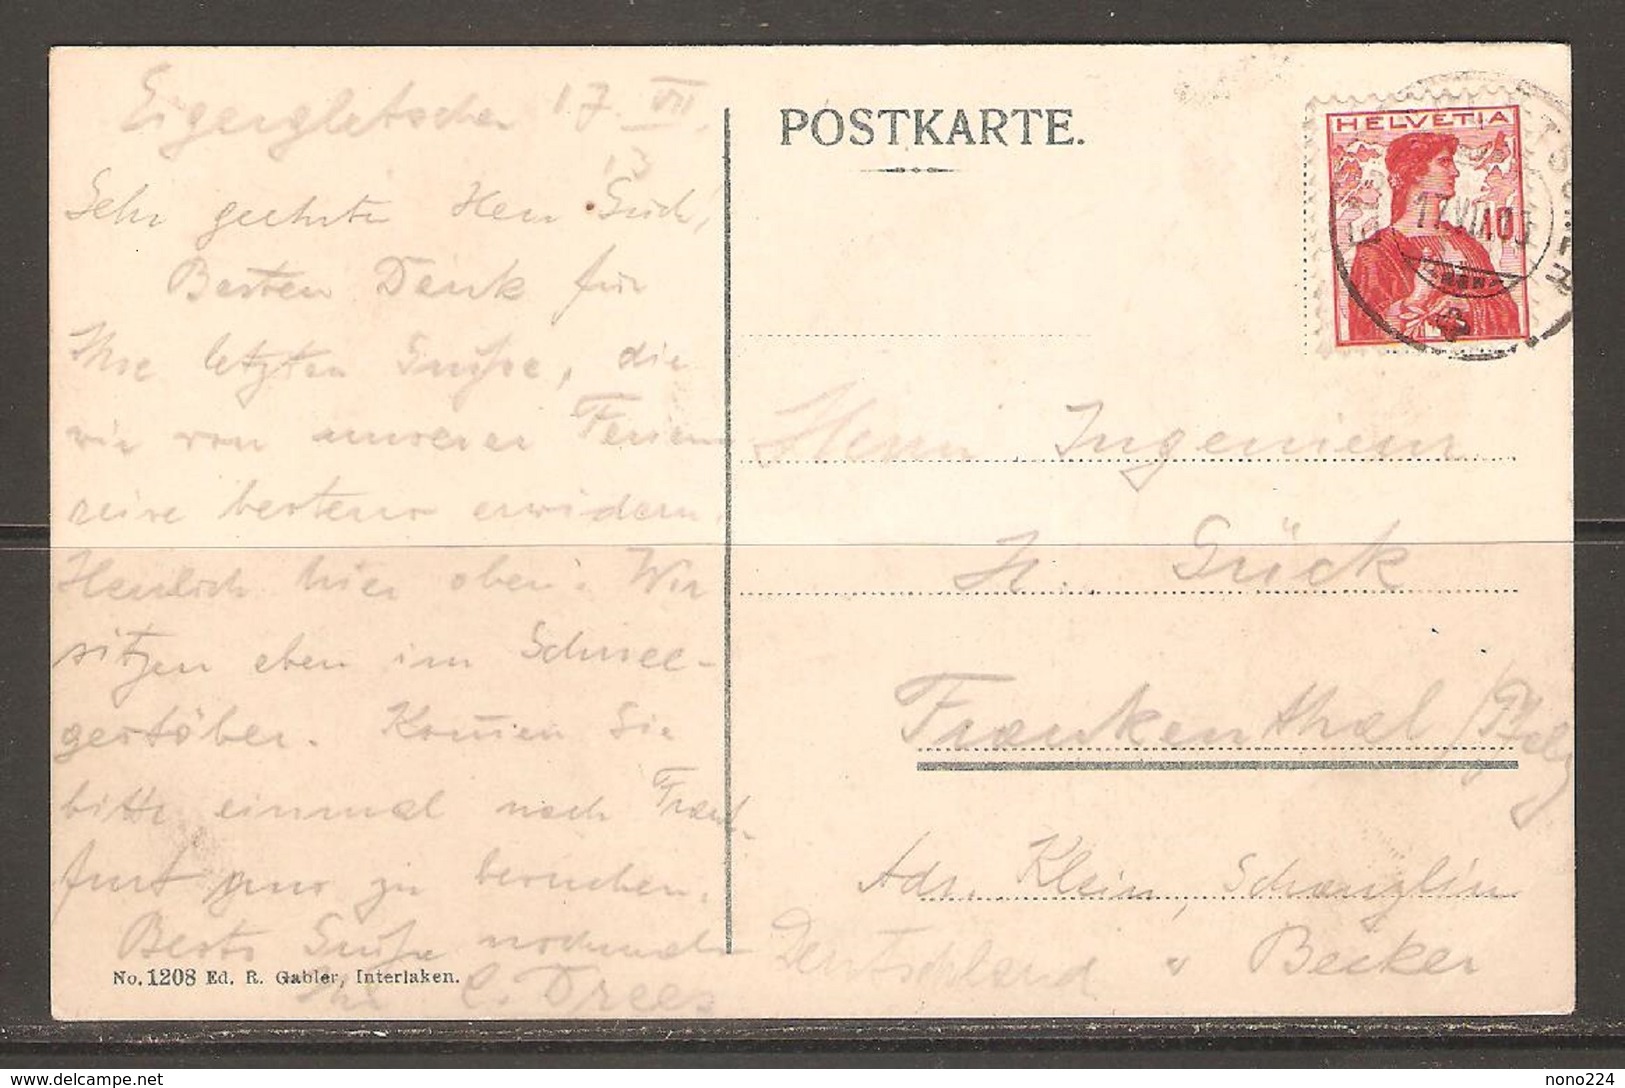 Eigergletscher 17. VII.
13
Sehr geehrter Herr Gück!
Besten Dank für
Ihre letzten Grüsse, die
wir von unserer Ferien
reise bestens erwidern.
Herrlich hier oben. Wir
sitzen eben im Schnee-
gestöber. Kommen Sie
bitte einmal nach Frank-
furt zu besuchen.
Beste Grüsse nochmals
Ihr C. Drees
No. 1208 Ed. R. Gabler, Interlaken.
POSTKARTE.
HELVETIA
Herrn Ingenieur
H. Gück
Frankenthal /Pfalz
Adr. Klein, Schanzlin
Deutschland " Becker
delcampe.net
nono224